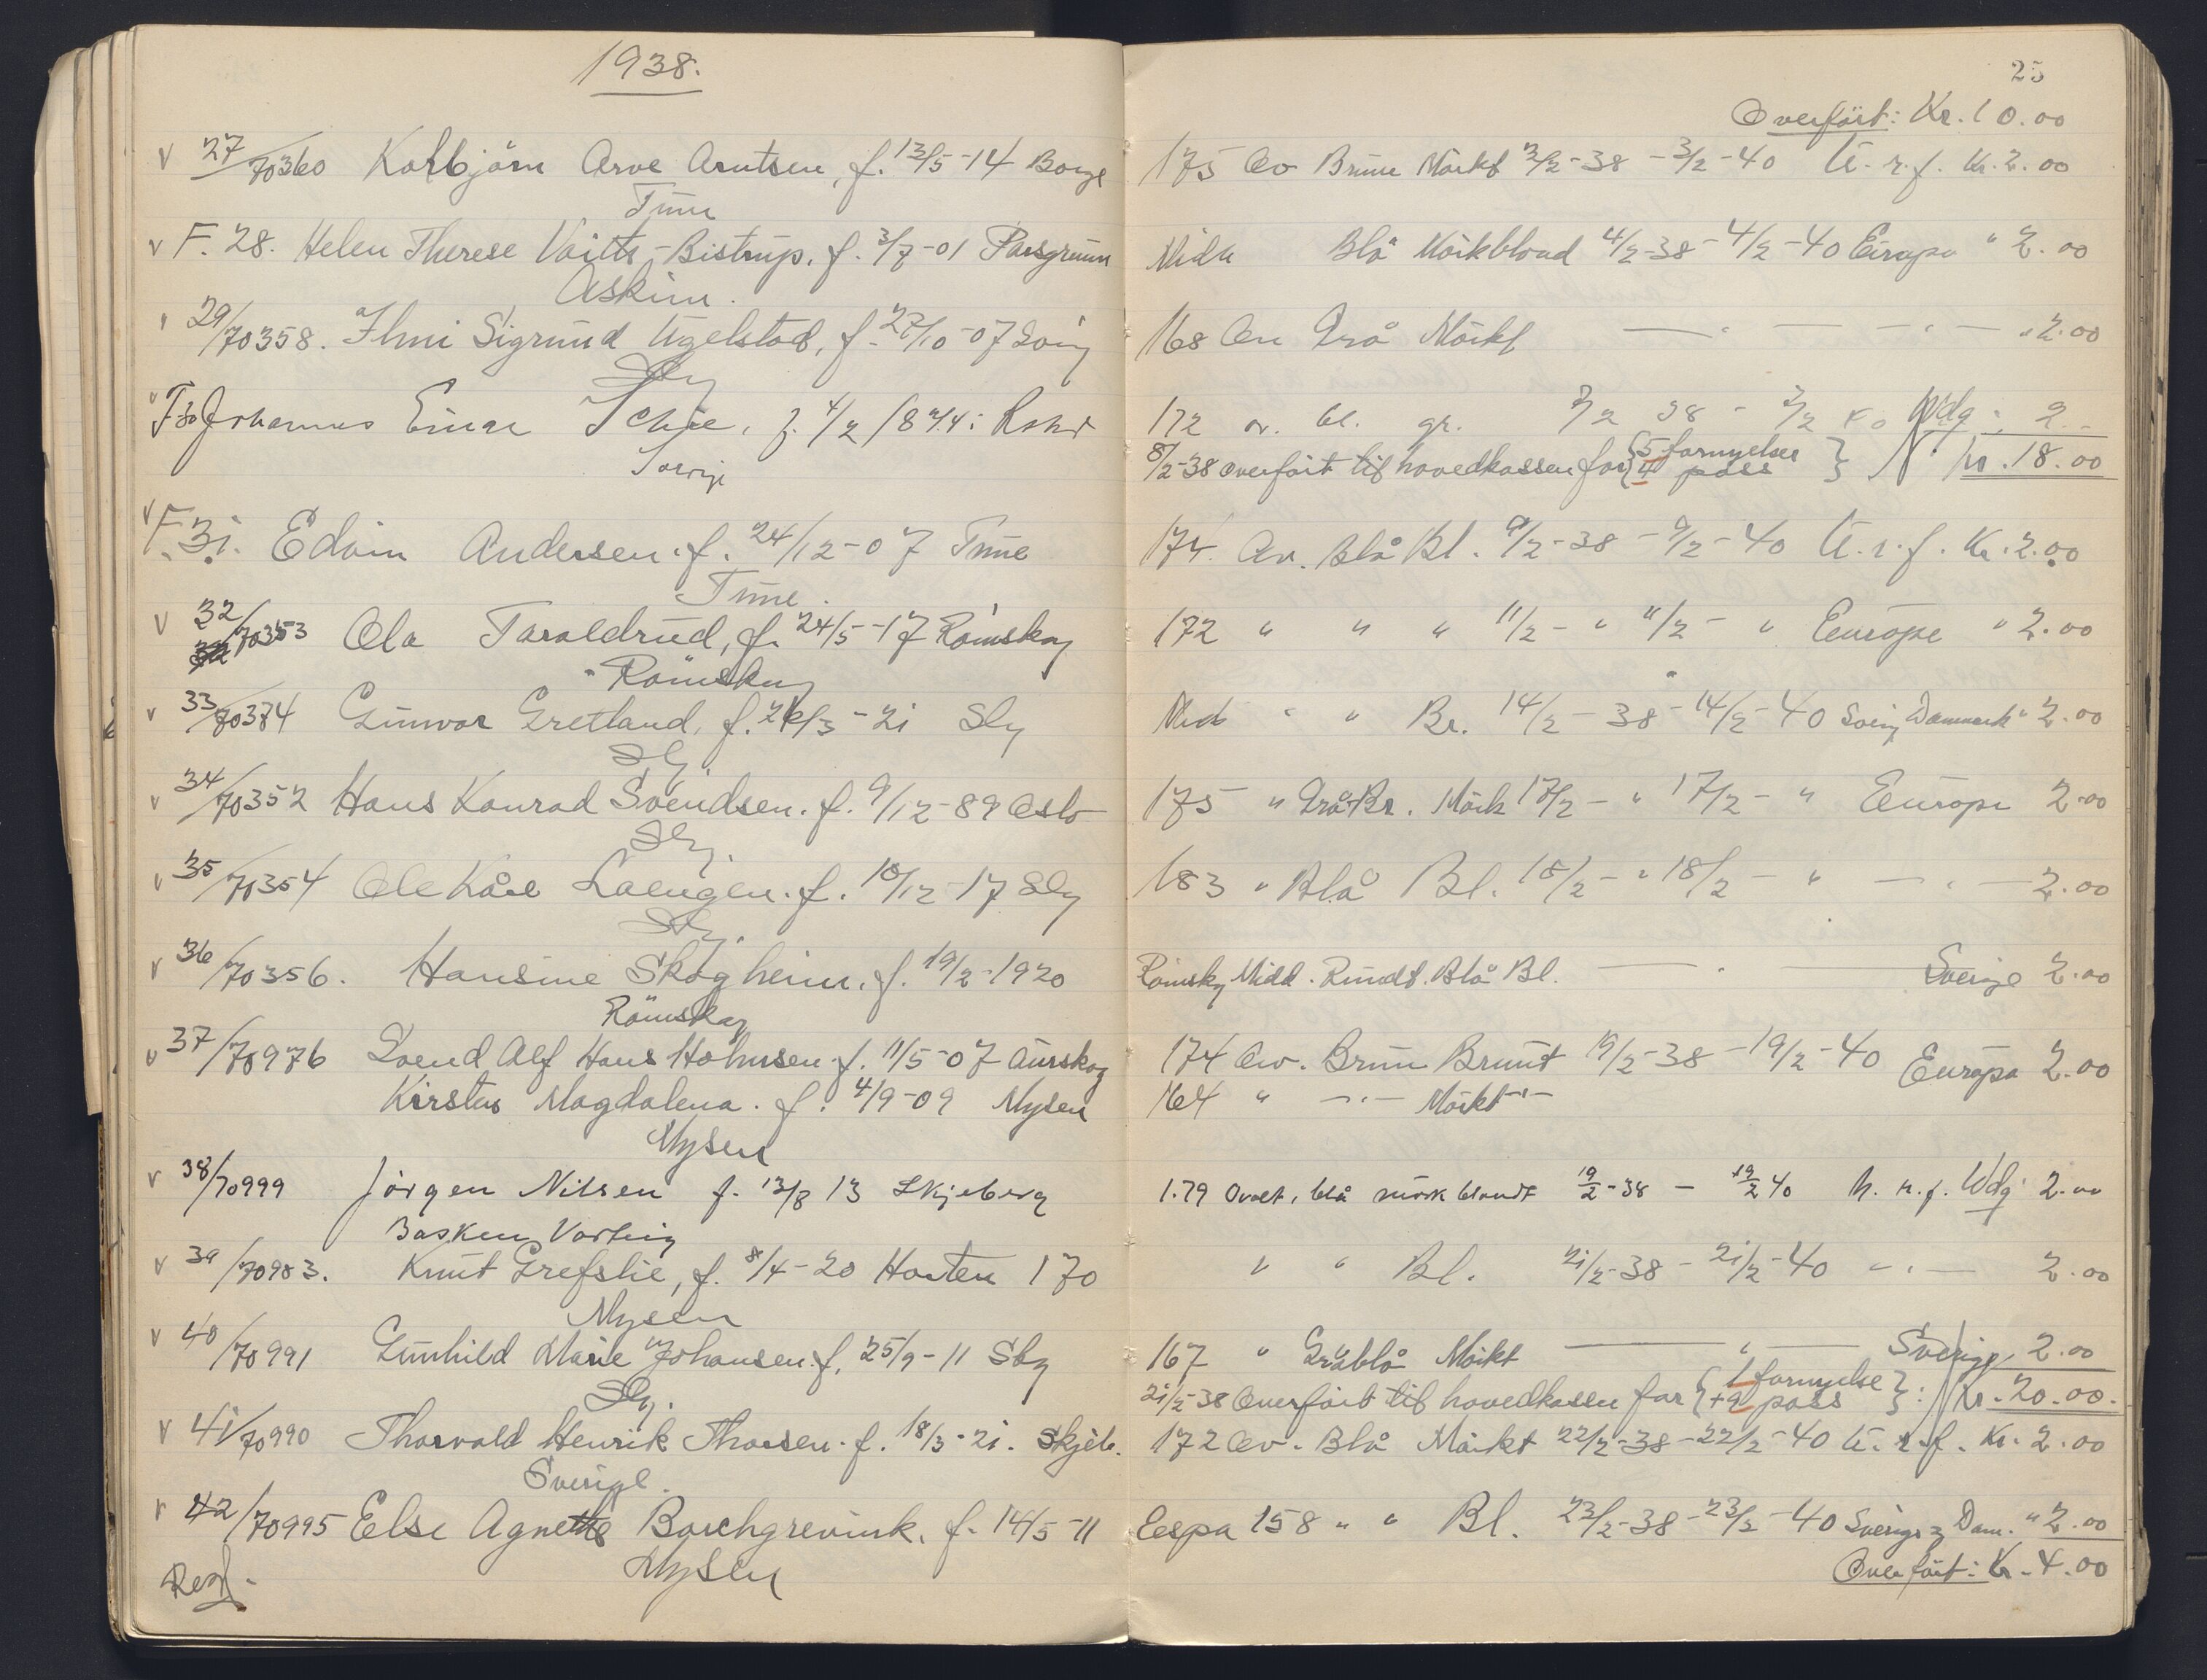 1938.
27/70360 Kolbjörn Arve Arntsen, f. 13/5-14 Borge
Tune
F. 28. Helen Therese Voitts-Bistrup. f. 3/7-01 Porsgrunn
Askim.
29/70358. Ilmi Sigrund Ugelstad, f. 27/10-07
Sbg
F30 Johannes Einar Schie, f. 4/2 1874 i
Sverige
F. 31. Edvin Andersen. f. 24/12-07 Tune
Tune.
32/70353 Ola Taraldrud, f. 24/5-17 Römskog
Römskog
33/70374 Gunvor Gretland, f. /3-21 Sbg
Sbg.
34/70352 Hans Konrad Svendsen. f. 9/12-89 Oslo
Sbg.
35/70354 Ole Kåre Laengen. f. 10/12-17 Sbg
Sbg.
36/70356. Hansine Skogheim. f. 19/2-1920
Römskog
37/70976 Svend Alf Hans Holmsen. f. 11/5-07 Aurskog
Kirsten Magdalena. f. 4/9-09 Mysen
Mysen
38/70999 Jörgen Nilsen f. 13/8 13 Skjeberg
Basken Varteig
39/70983. Knut Grefslie, f. 8/4-20 Horten 170
Mysen
40/70991 Gunhild Marie Johansen. f. 25/9-11 Sbg
Sbg.
41/70990 Thorvald Henrik Thorsen. f. 18/3-21. Skjeb.
Sverige.
42/70995 Else Agnethe Borchgrevink. f. 14/5-11
Mysen
25
Overfört: Kr. 10.00
175 Ov Brune Mörkt 3/2-38-3/2-40 U.r.f. Kr. 2.00
Midd Blå Mörkblond 4/2-38-4/2-40 Europa " 2.00
168 Ov Grå Mörkt — " — — " — " 2.00
172 ov. bl. gr. 7/2 38 - 7/2 40 Wdg: 2.-
8/2-38 overfört til hovedkassen for {5 fornyelser 4 pass} Kr. 18.00
174 Ov. Blå Bl. 9/2-38-9/2-40 U.r.f. Kr. 2.00
172 " " " 11/2- " 11/2- " Europa " 2.00
Midd " " Br. 14/2-38-14/2-40 Sverig Danmark " 2.00
175 " Grå-Br. Mörk 17/2- " 17/2- " Europa 2.00
183 " Blå Bl. 18/2- " 18/2- " — " — 2.00
Römskg Midd. Rundt. Blå Bl. — " — Sverige 2.00
174 Ov. Brun Brunt 19/2-38-19/2-40 Europa 2.00
164 " — " — Mörkt — " —
1.79 Ovalt, blå mörk blondt 19/2-38 - 19/2 40 U.r.f. Wdg 2.00
" " Bl. 21/2-38-21/2-40 — " — 2.00
167 " Gråblå Mörkt — " — Sverige 2.00
21/2-38 Overfört til hovedkassen for {1 fornyelse +9 pass}: Kr. 20.00.
172 Ov. Blå Mörkt 22/2-38-22/2-40 U.r.f. Kr. 2.00
158 " " Bl. 23/2-38-23/2-40 Sverige og Dam. " 2.00
Overfört: Kr. 4.00